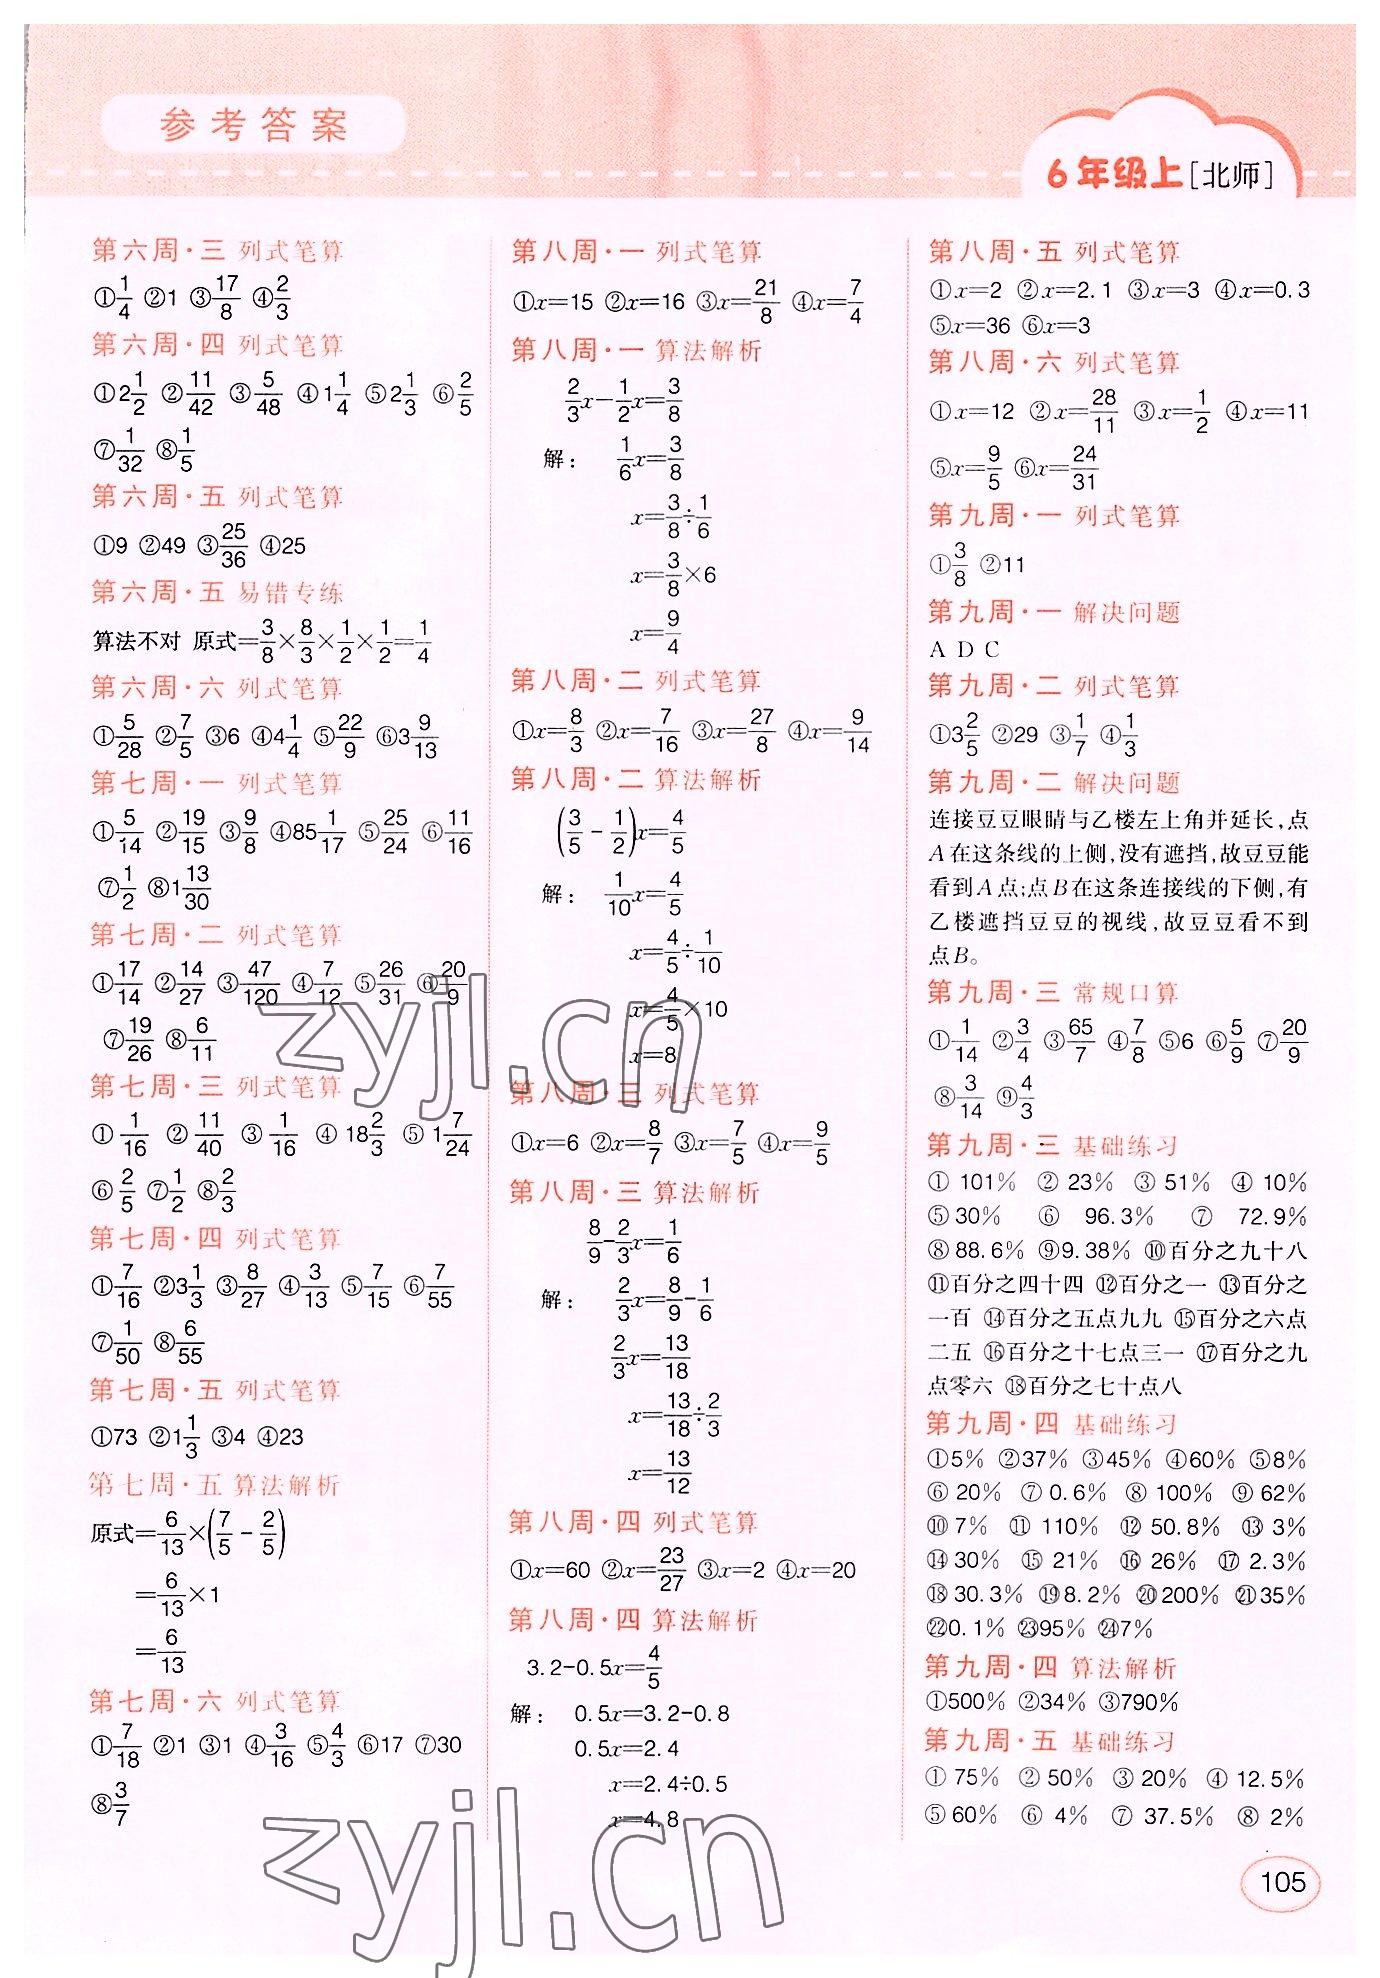 参考答案
6年级上[北师]
第六周·三 列式笔算
①1/4 ②1 ③17/8 ④2/3
第六周·四 列式笔算
①2 1/2 ②11/42 ③5/48 ④1 1/4 ⑤2 1/3 ⑥2/5
⑦1/32 ⑧1/5
第六周·五 列式笔算
①9 ②49 ③25/36 ④25
第六周·五 易错专练
算法不对 原式=3/8×8/3×1/2×1/2=1/4
第六周·六 列式笔算
①5/28 ②7/5 ③6 ④4 1/4 ⑤22/9 ⑥3 9/13
第七周·一 列式笔算
①5/14 ②19/15 ③9/8 ④85 1/17 ⑤25/24 ⑥11/16
⑦1/2 ⑧1 13/30
第七周·二 列式笔算
①17/14 ②14/27 ③47/120 ④7/12 ⑤26/31 ⑥20/9
⑦19/26 ⑧6/11
第七周·三 列式笔算
①1/16 ②11/40 ③1/16 ④18 2/3 ⑤1 7/24
⑥2/5 ⑦1/2 ⑧2/3
第七周·四 列式笔算
①7/16 ②3 1/3 ③8/27 ④3/13 ⑤7/15 ⑥7/55
⑦1/50 ⑧6/55
第七周·五 列式笔算
①73 ②1 1/3 ③4 ④23
第七周·五 算法解析
原式=6/13×(7/5-2/5)
=6/13×1
=6/13
第七周·六 列式笔算
①7/18 ②1 ③1 ④3/16 ⑤4/3 ⑥17 ⑦30
⑧3/7
第八周·一 列式笔算
①x=15 ②x=16 ③x=21/8 ④x=7/4
第八周·一 算法解析
2/3x-1/2x=3/8
解: 1/6x=3/8
x=3/8÷1/6
x=3/8×6
x=9/4
第八周·二 列式笔算
①x=8/3 ②x=7/16 ③x=27/8 ④x=9/14
第八周·二 算法解析
(3/5-1/2)x=4/5
解: 1/10x=4/5
x=4/5÷1/10
x=4/5×10
x=8
第八周·三 列式笔算
①x=6 ②x=8/7 ③x=7/5 ④x=9/5
第八周·三 算法解析
8/9-2/3x=1/6
解: 2/3x=8/9-1/6
2/3x=13/18
x=13/18÷2/3
x=13/12
第八周·四 列式笔算
①x=60 ②x=23/27 ③x=2 ④x=20
第八周·四 算法解析
3.2-0.5x=4/5
解: 0.5x=3.2-0.8
0.5x=2.4
x=2.4÷0.5
x=4.8
第八周·五 列式笔算
①x=2 ②x=2.1 ③x=3 ④x=0.3
⑤x=36 ⑥x=3
第八周·六 列式笔算
①x=12 ②x=28/11 ③x=1/2 ④x=11
⑤x=9/5 ⑥x=24/31
第九周·一 列式笔算
①3/8 ②11
第九周·一 解决问题
A D C
第九周·二 列式笔算
①3 2/5 ②29 ③1/7 ④1/3
第九周·二 解决问题
连接豆豆眼睛与乙楼左上角并延长,点
A在这条线的上侧,没有遮挡,故豆豆能
看到A点;点B在这条连接线的下侧,有
乙楼遮挡豆豆的视线,故豆豆看不到
点B。
第九周·三 常规口算
①1/14 ②3/4 ③65/7 ④7/8 ⑤6 ⑥5/9 ⑦20/9
⑧3/14 ⑨4/3
第九周·三 基础练习
① 101% ② 23% ③ 51% ④ 10%
⑤ 30% ⑥ 96.3% ⑦ 72.9%
⑧ 88.6% ⑨9.38% ⑩百分之九十八
⑪百分之四十四 ⑫百分之一 ⑬百分之
一百 ⑭百分之五点九九 ⑮百分之六点
二五 ⑯百分之十七点三一 ⑰百分之九
点零六 ⑱百分之七十点八
第九周·四 基础练习
①5% ②37% ③45% ④60% ⑤8%
⑥ 20% ⑦ 0.6% ⑧ 100% ⑨ 62%
⑩ 7% ⑪ 110% ⑫ 50.8% ⑬ 3%
⑭ 30% ⑮ 21% ⑯ 26% ⑰ 2.3%
⑱ 30.3% ⑲8.2% ⑳200% ㉑35%
㉒0.1% ㉓95% ㉔7%
第九周·四 算法解析
①500% ②34% ③790%
第九周·五 基础练习
① 75% ② 50% ③ 20% ④ 12.5%
⑤ 60% ⑥ 4% ⑦ 37.5% ⑧ 2%
105
zyjl.cn
zyjl.cn